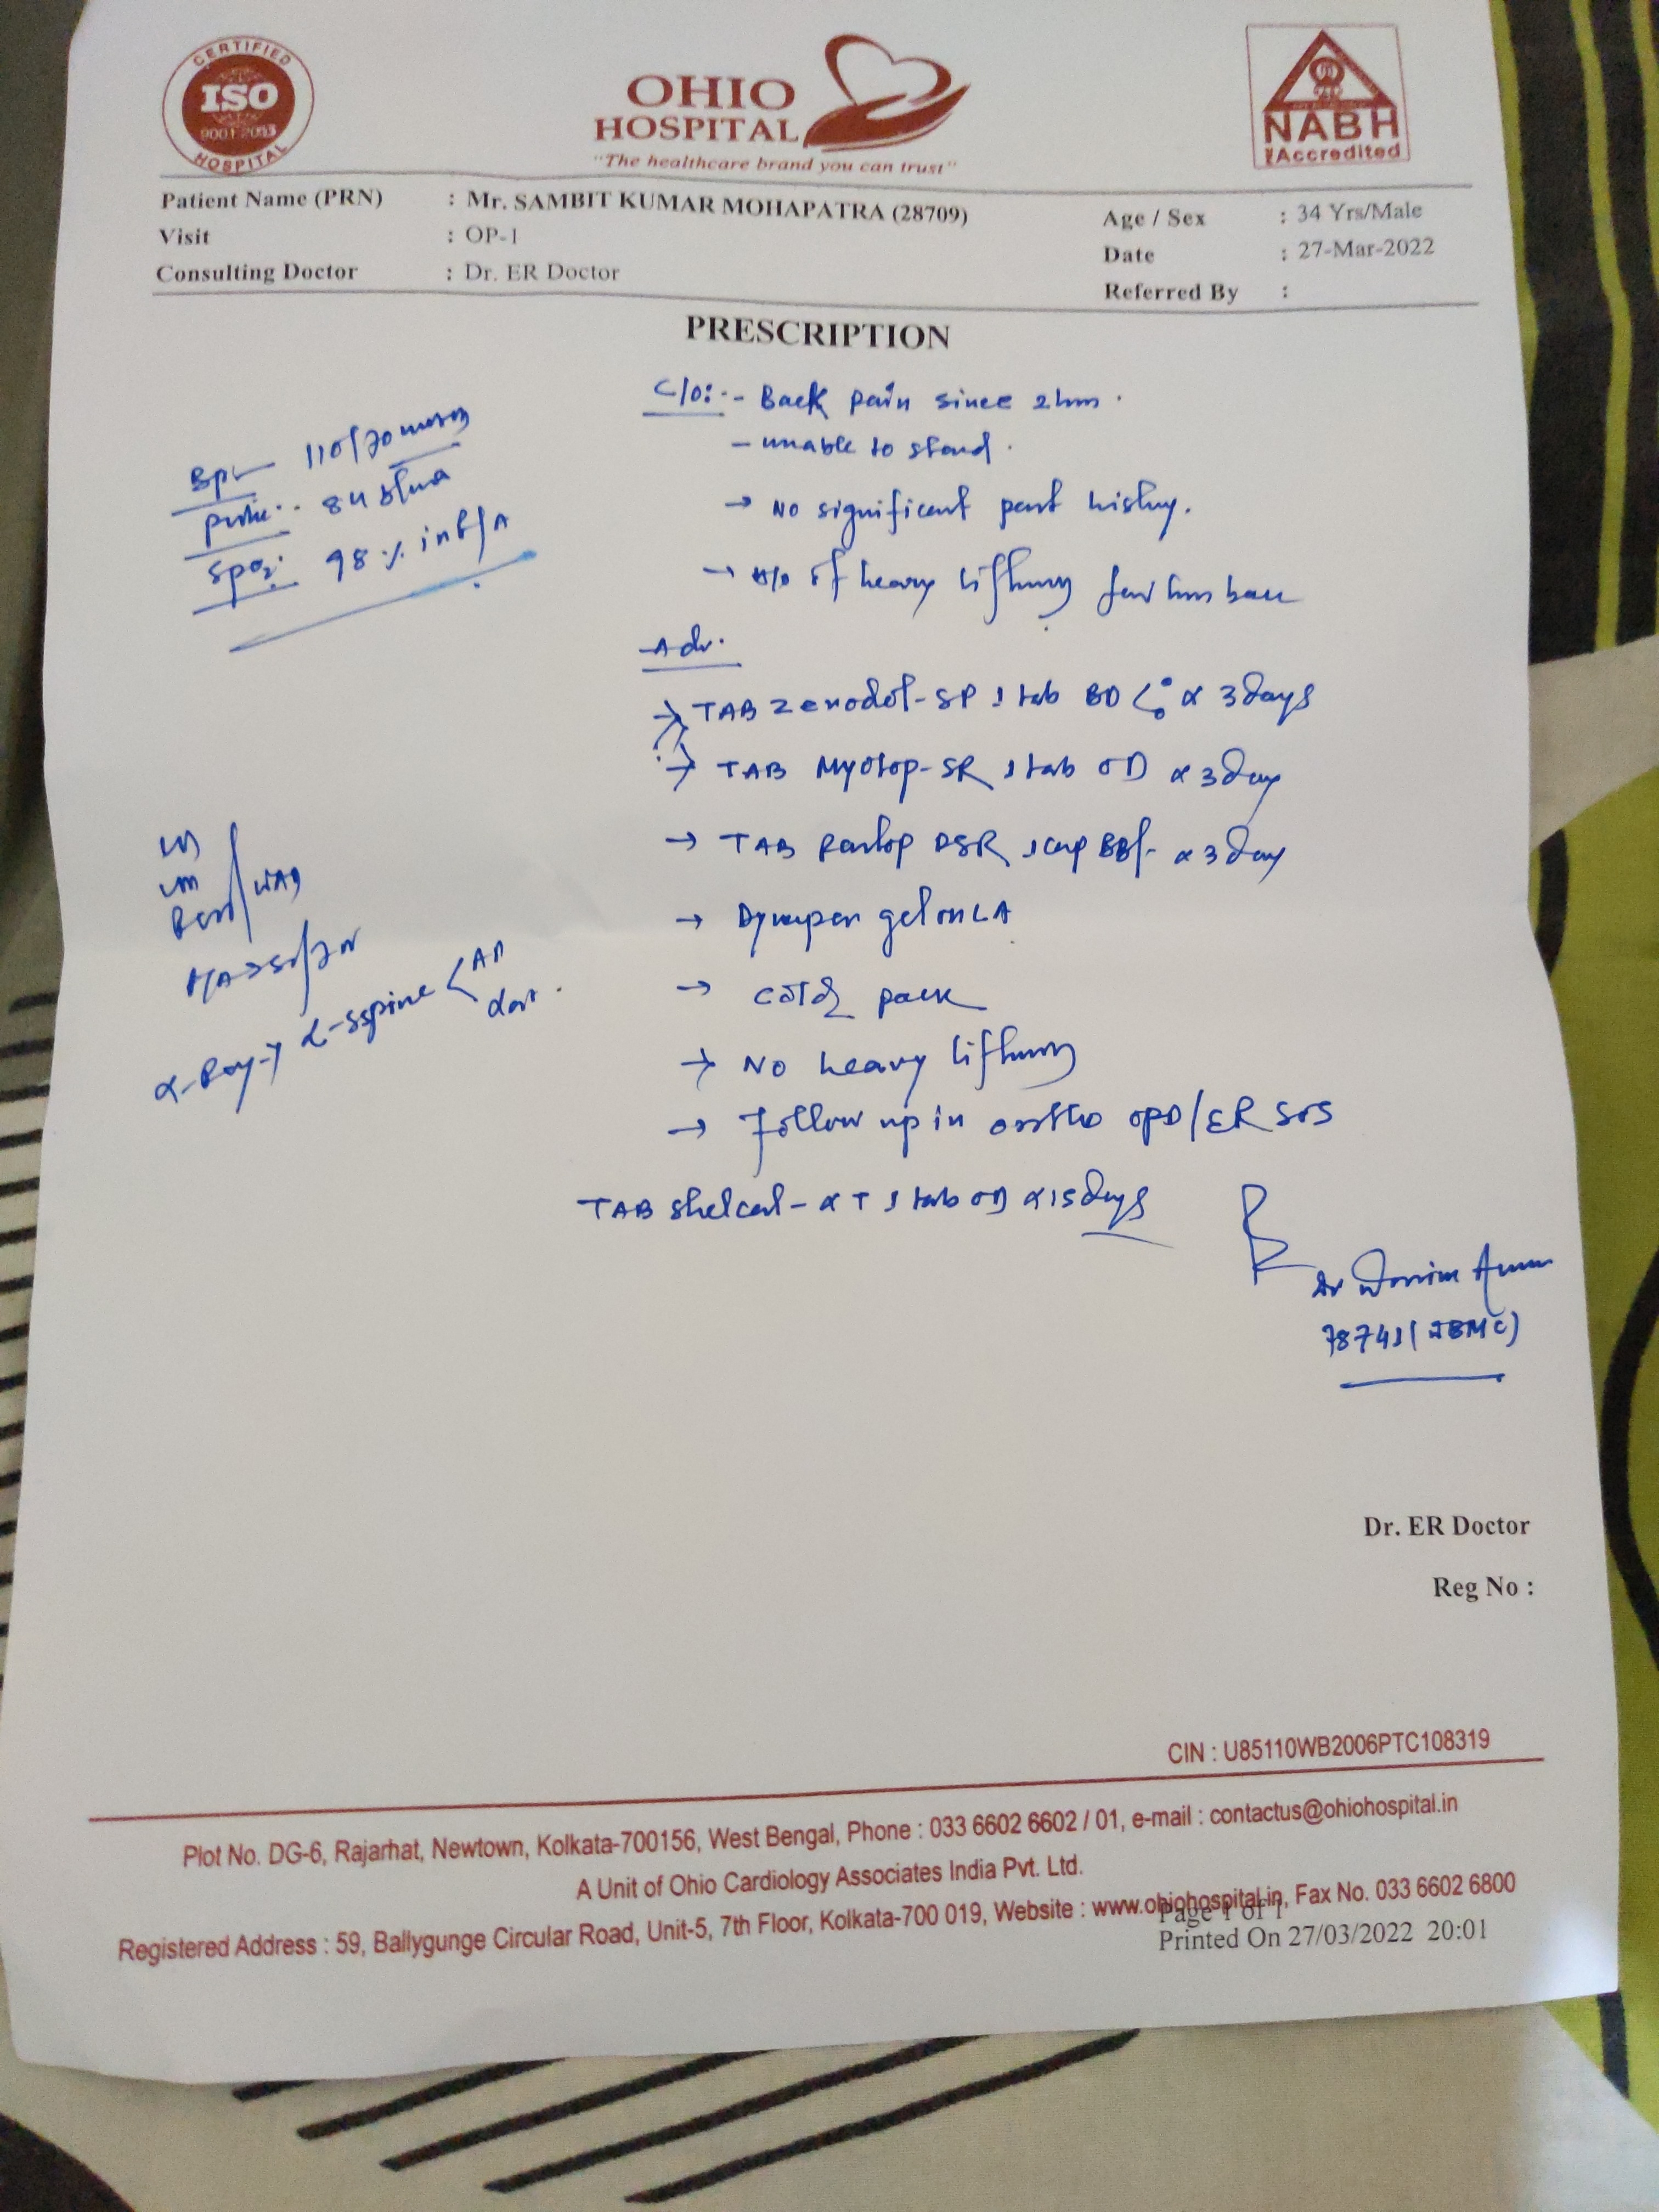 CERTIFIED
ISO
9001:2013
HOSPITAL
OHIO
HOSPITAL
"The healthcare brand you can trust"
NABH
Accredited
Patient Name (PRN) : Mr. SAMBIT KUMAR MOHAPATRA (28709)
Age / Sex : 34 Yrs/Male
Visit : OP-1
Date : 27-Mar-2022
Consulting Doctor : Dr. ER Doctor
Referred By :
PRESCRIPTION
C/O:- - Back pain since 2 hrs.
- unable to stand.
→ No significant past history.
→ H/O of heavy lifting few hrs back
BP 110/70 mmHg
Pulse 84
SpO2 98%
Adv.
→ TAB Zerodol-SP 1 tab BD x 3 days
→ TAB Myotop-SR 1 tab OD x 3 day
→ TAB Pantop DSR 1 cap BBF x 3 day
→ gel on LA
→ Cold pack
→ No heavy lifting
→ Follow up in ortho OPD/ER SOS
TAB Shelcal-XT 1 tab OD x 15 days
X-Ray → L-S spine < AP
Lat.
Dr
78741 (WBMC)
Dr. ER Doctor
Reg No :
CIN : U85110WB2006PTC108319
Plot No. DG-6, Rajarhat, Newtown, Kolkata-700156, West Bengal, Phone : 033 6602 6602 / 01, e-mail : contactus@ohiohospital.in
A Unit of Ohio Cardiology Associates India Pvt. Ltd.
Registered Address : 59, Ballygunge Circular Road, Unit-5, 7th Floor, Kolkata-700 019, Website : www.ohiohospital.in, Fax No. 033 6602 6800
Page 1 of 1
Printed On 27/03/2022 20:01